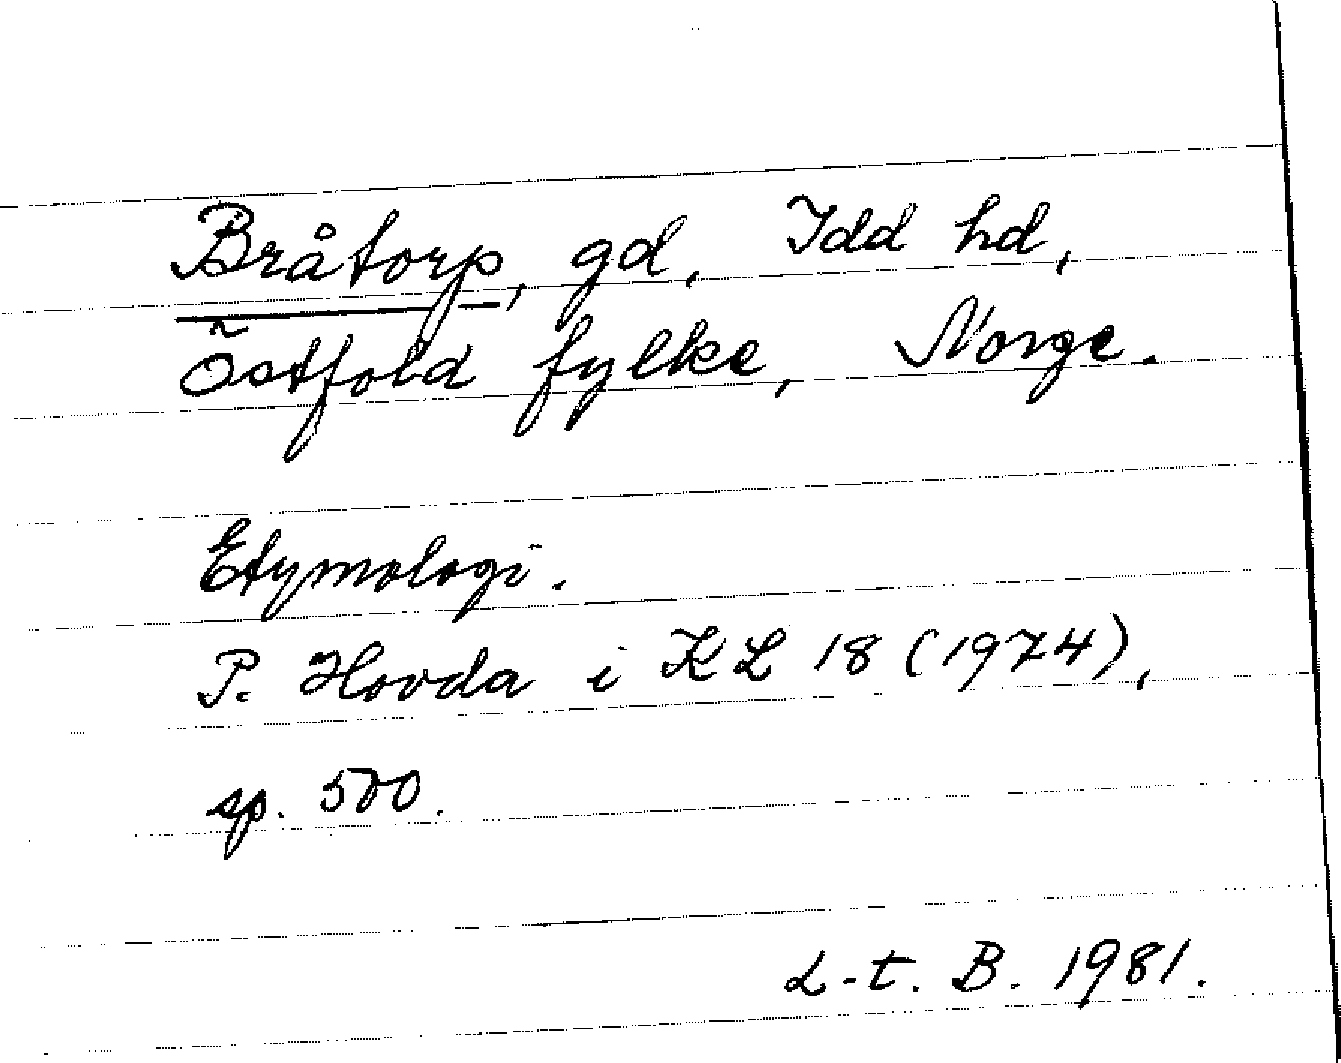 Bråtorp, gd, Idd hd,
Östfold fylke, Norge.
Etymologi.
P. Hovda i KL 18 (1974),
sp. 500.
L-t. B. 1981.